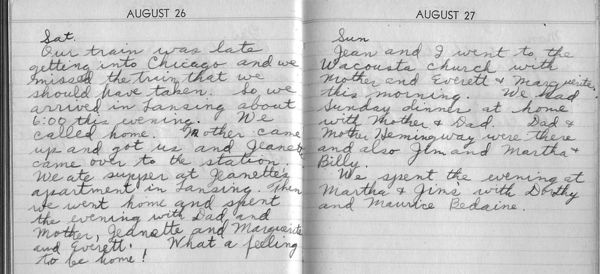 AUGUST 26
Sat.
Our train was late
getting into Chicago and we
missed the train that we
should have taken. So we
arrived in Lansing about
6:00 this evening. We
called home. Mother came
up and got us and Jeanette
came over to the station.
We ate supper at Jeanette's
apartment in Lansing. Then
we went home and spent
the evening with Dad and
Mother, Jeanette and Marguerite
and Everett. What a feeling
to be home!
AUGUST 27
Sun
Jean and I went to the
Wacousta church with
Mother and Everett & Marguerite
this morning. We had
Sunday dinner at home
with Mother & Dad. Dad &
Mother Hemingway were there
and also Jim and Martha &
Billy.
We spent the evening at
Martha & Jim's with Dorothy
and Maurice Bedaine.